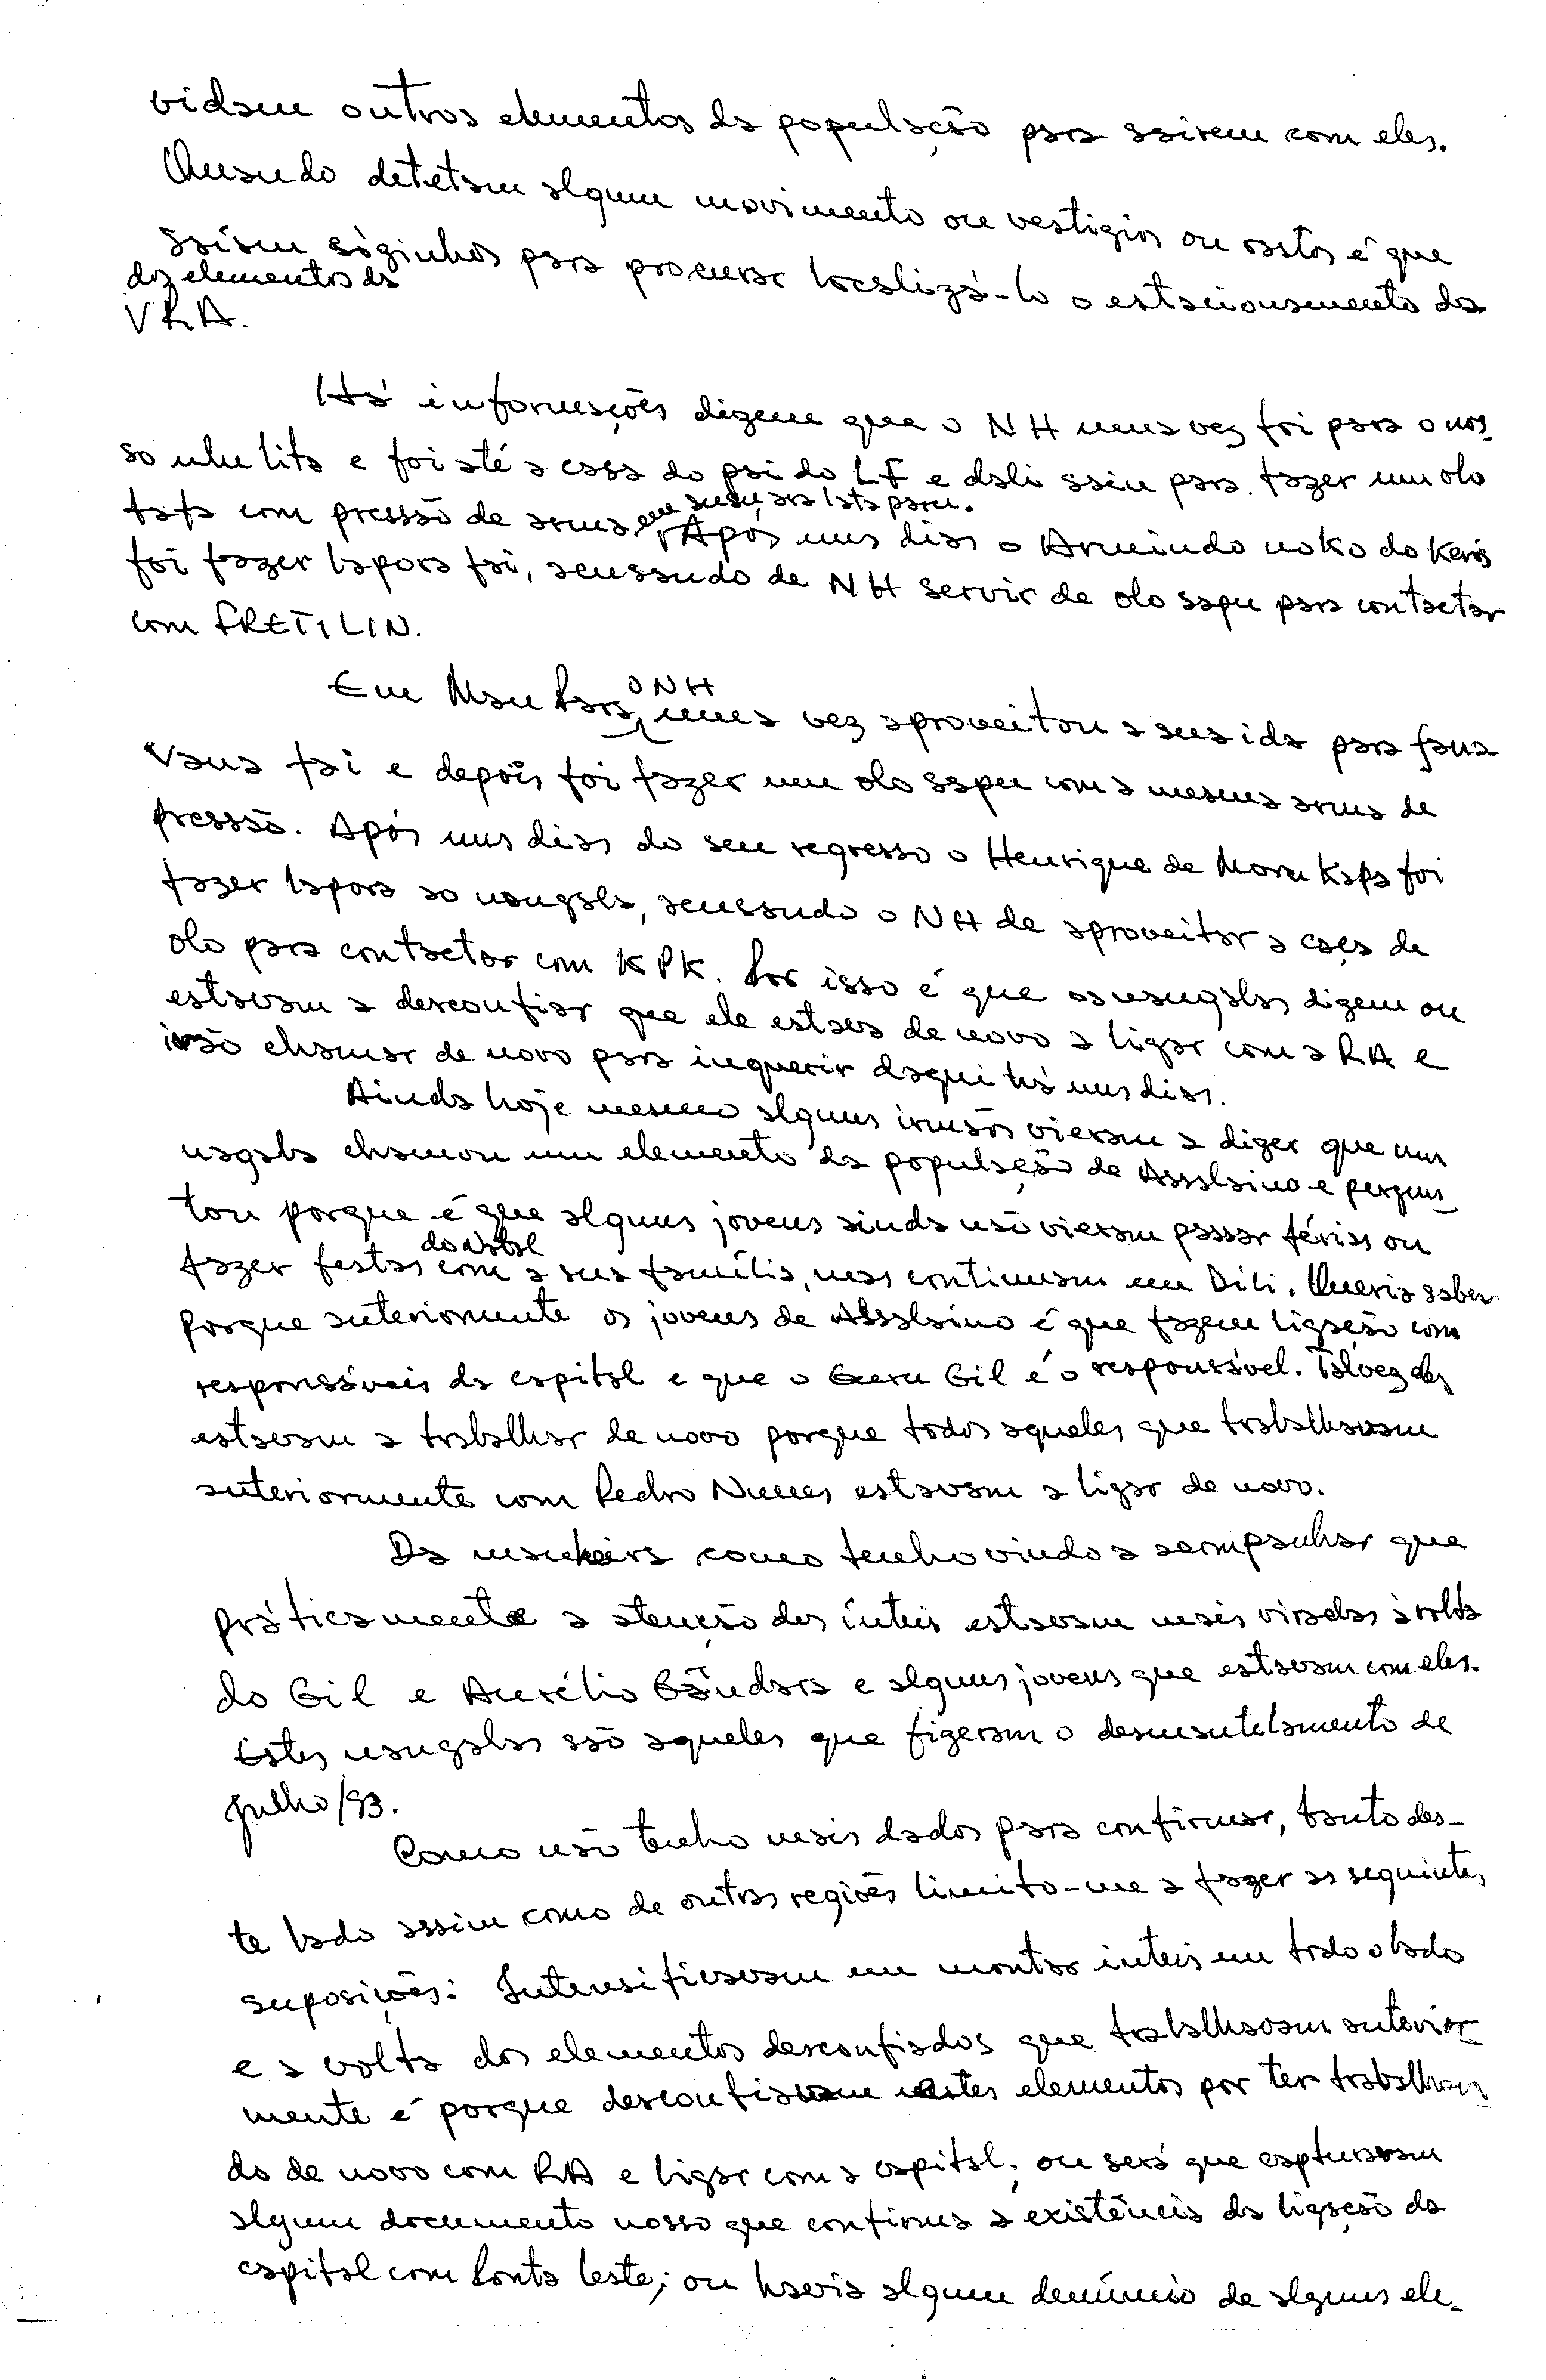 vidam outros elementos da população para sairem com eles.
Quando detetam algum movimento ou vestigios ou rastos é que
saíam sòzinhos para procurar localizá-lo o estacionamento da
dos elementos da
VRA.
Há informações dizem que o NH uma vez foi para o nos
so uhu lita e foi até a casa do pai do LF e dali saiu para fazer um olo
tafa com pressão de arma em suas ara lata paru.
Após uns dias o Armindo noko do Keris
foi fazer lapora fai, acusando de NH servir de olo sapu para contactar
com FRETILIN.
Em Mau Para, o NH uma vez aproveitou a sua ida para fana
vaua fai e depois foi fazer um olo sapu com a mesma arma de
pressão. Após uns dias do seu regresso o Henrique de Moru Kafa foi
fazer lapora ao nangala, acusando o NH de aproveitar a caça de
olo para contactar com KPK. Por isso é que os nangalas dizem ou
estavam a desconfiar que ele estava de novo a ligar com a RA e
irão chamar de novo para inquerir daqui há uns dias.
Ainda hoje mesmo alguns irmãos vieram a dizer que um
nagala chamou um elemento da população de Assalaino e pergun
tou porque é que alguns jovens ainda não vieram passar férias ou
fazer festas do Natal com a sua família, mas continuam em Dili. Queria saber
porque anteriormente os jovens de Assalaino é que fazem ligação com
responsáveis da capital e que o Guru Gil é o responsável. Talvez eles
estavam a trabalhar de novo porque todos aqueles que trabalhavam
anteriormente com Pedro Nunes estavam a ligar de novo.
Da maneira como tenho vindo a acompanhar que
práticamente a atenção dos ínteis estavam mais viradas à volta
do Gil e Aurélio Gândara e alguns jovens que estavam com eles.
Estes nangalas são aqueles que fizeram o desmantelamento de
Julho/93.
Como não tenho mais dados para confirmar, tanto des-
te lado assim como de outras regiões limito-me a fazer as seguintes
suposições: Intensificavam em montar inteis em todo o lado
e a volta dos elementos desconfiados que trabalhavam anterior
mente é porque desconfiavam estes elementos por ter trabalhan
do de novo com RA e ligar com a capital; ou será que capturavam
algum documento nosso que confirma a existência da ligação da
capital com Ponta Leste; ou haveria algum denúncio de alguns ele-